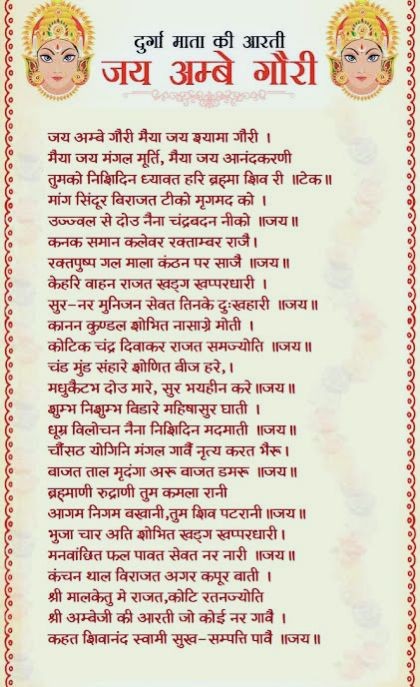 दुर्गा माता की आरती
जय अम्बे गौरी
जय अम्बे गौरी मैया जय श्यामा गौरी ।
मैया जय मंगल मूर्ति, मैया जय आनंदकरणी
तुमको निशिदिन ध्यावत हरि ब्रह्मा शिव री ॥टेक॥
मांग सिंदूर विराजत टीको मृगमद को ।
उज्ज्वल से दोउ नैना चंद्रबदन नीको ॥जय॥
कनक समान कलेवर रक्ताम्बर राजै।
रक्तपुष्प गल माला कंठन पर साजै ॥जय॥
केहरि वाहन राजत खड्ग खप्परधारी ।
सुर-नर मुनिजन सेवत तिनके दुःखहारी ॥जय॥
कानन कुण्डल शोभित नासाग्रे मोती ।
कोटिक चंद्र दिवाकर राजत समज्योति ॥जय॥
चंड मुंड संहारे शोणित बीज हरे,।
मधुकैटभ दोउ मारे, सुर भयहीन करे॥जय॥
शुम्भ निशुम्भ बिडारे महिषासुर घाती ।
धूम्र विलोचन नैना निशिदिन मदमाती ॥जय॥
चौंसठ योगिनि मंगल गावैं नृत्य करत भैरू।
बाजत ताल मृदंगा अरू बाजत डमरू ॥जय॥
ब्रह्माणी रुद्राणी तुम कमला रानी
आगम निगम बखानी,तुम शिव पटरानी॥जय॥
भुजा चार अति शोभित खड्ग खप्परधारी।
मनवांछित फल पावत सेवत नर नारी ॥जय॥
कंचन थाल विराजत अगर कपूर बाती ।
श्री मालकेतु मे राजत,कोटि रतनज्योति
श्री अम्बेजी की आरती जो कोई नर गावै ।
कहत शिवानंद स्वामी सुख-सम्पत्ति पावै ॥जय॥